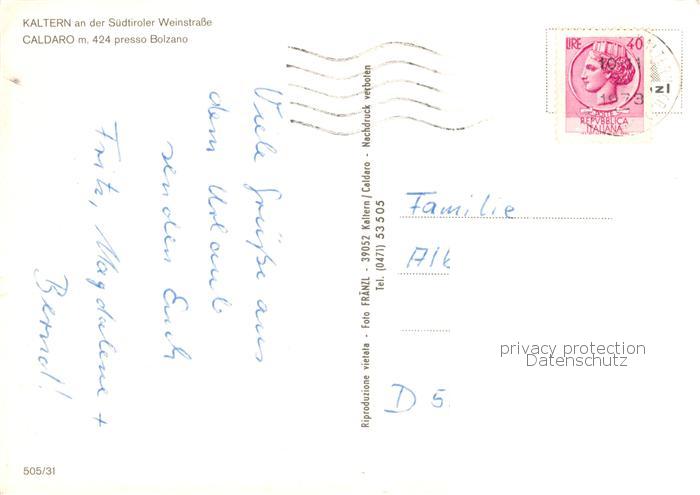 KALTERN an der Südtiroler Weinstraße
CALDARO m. 424 presso Bolzano
Viele Grüße aus
dem Urlaub
senden Euch
Fritz, Magdalene +
Bernd!
505/31
Riproduzione vietata - Foto FRÄNZL - 39052 Kaltern/Caldaro - Nachdruck verboten
Tel. (0471) 53505
LIRE 40
POSTE
REPVBBLICA
ITALIANA
1973
Familie
Alb
D 5
privacy protection
Datenschutz